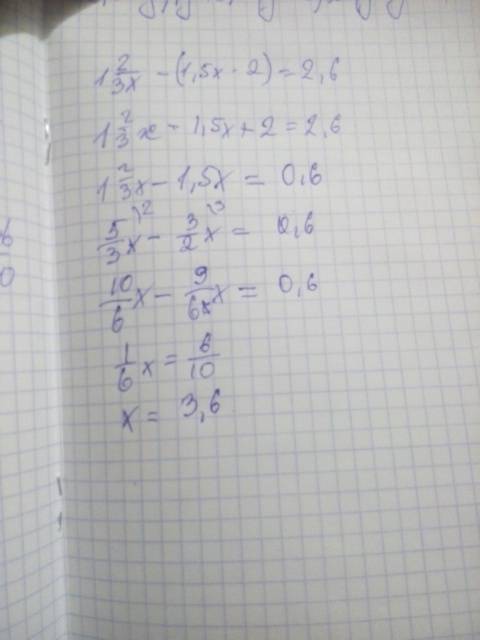 1 2/3x - (1,5x - 2) = 2,6
1 2/3 x - 1,5x + 2 = 2,6
1 2/3 x - 1,5x = 0,6
5/3 x \2 - 3/2 x \3 = 0,6
10/6 x - 9/6 x = 0,6
1/6 x = 6/10
x = 3,6
6
0